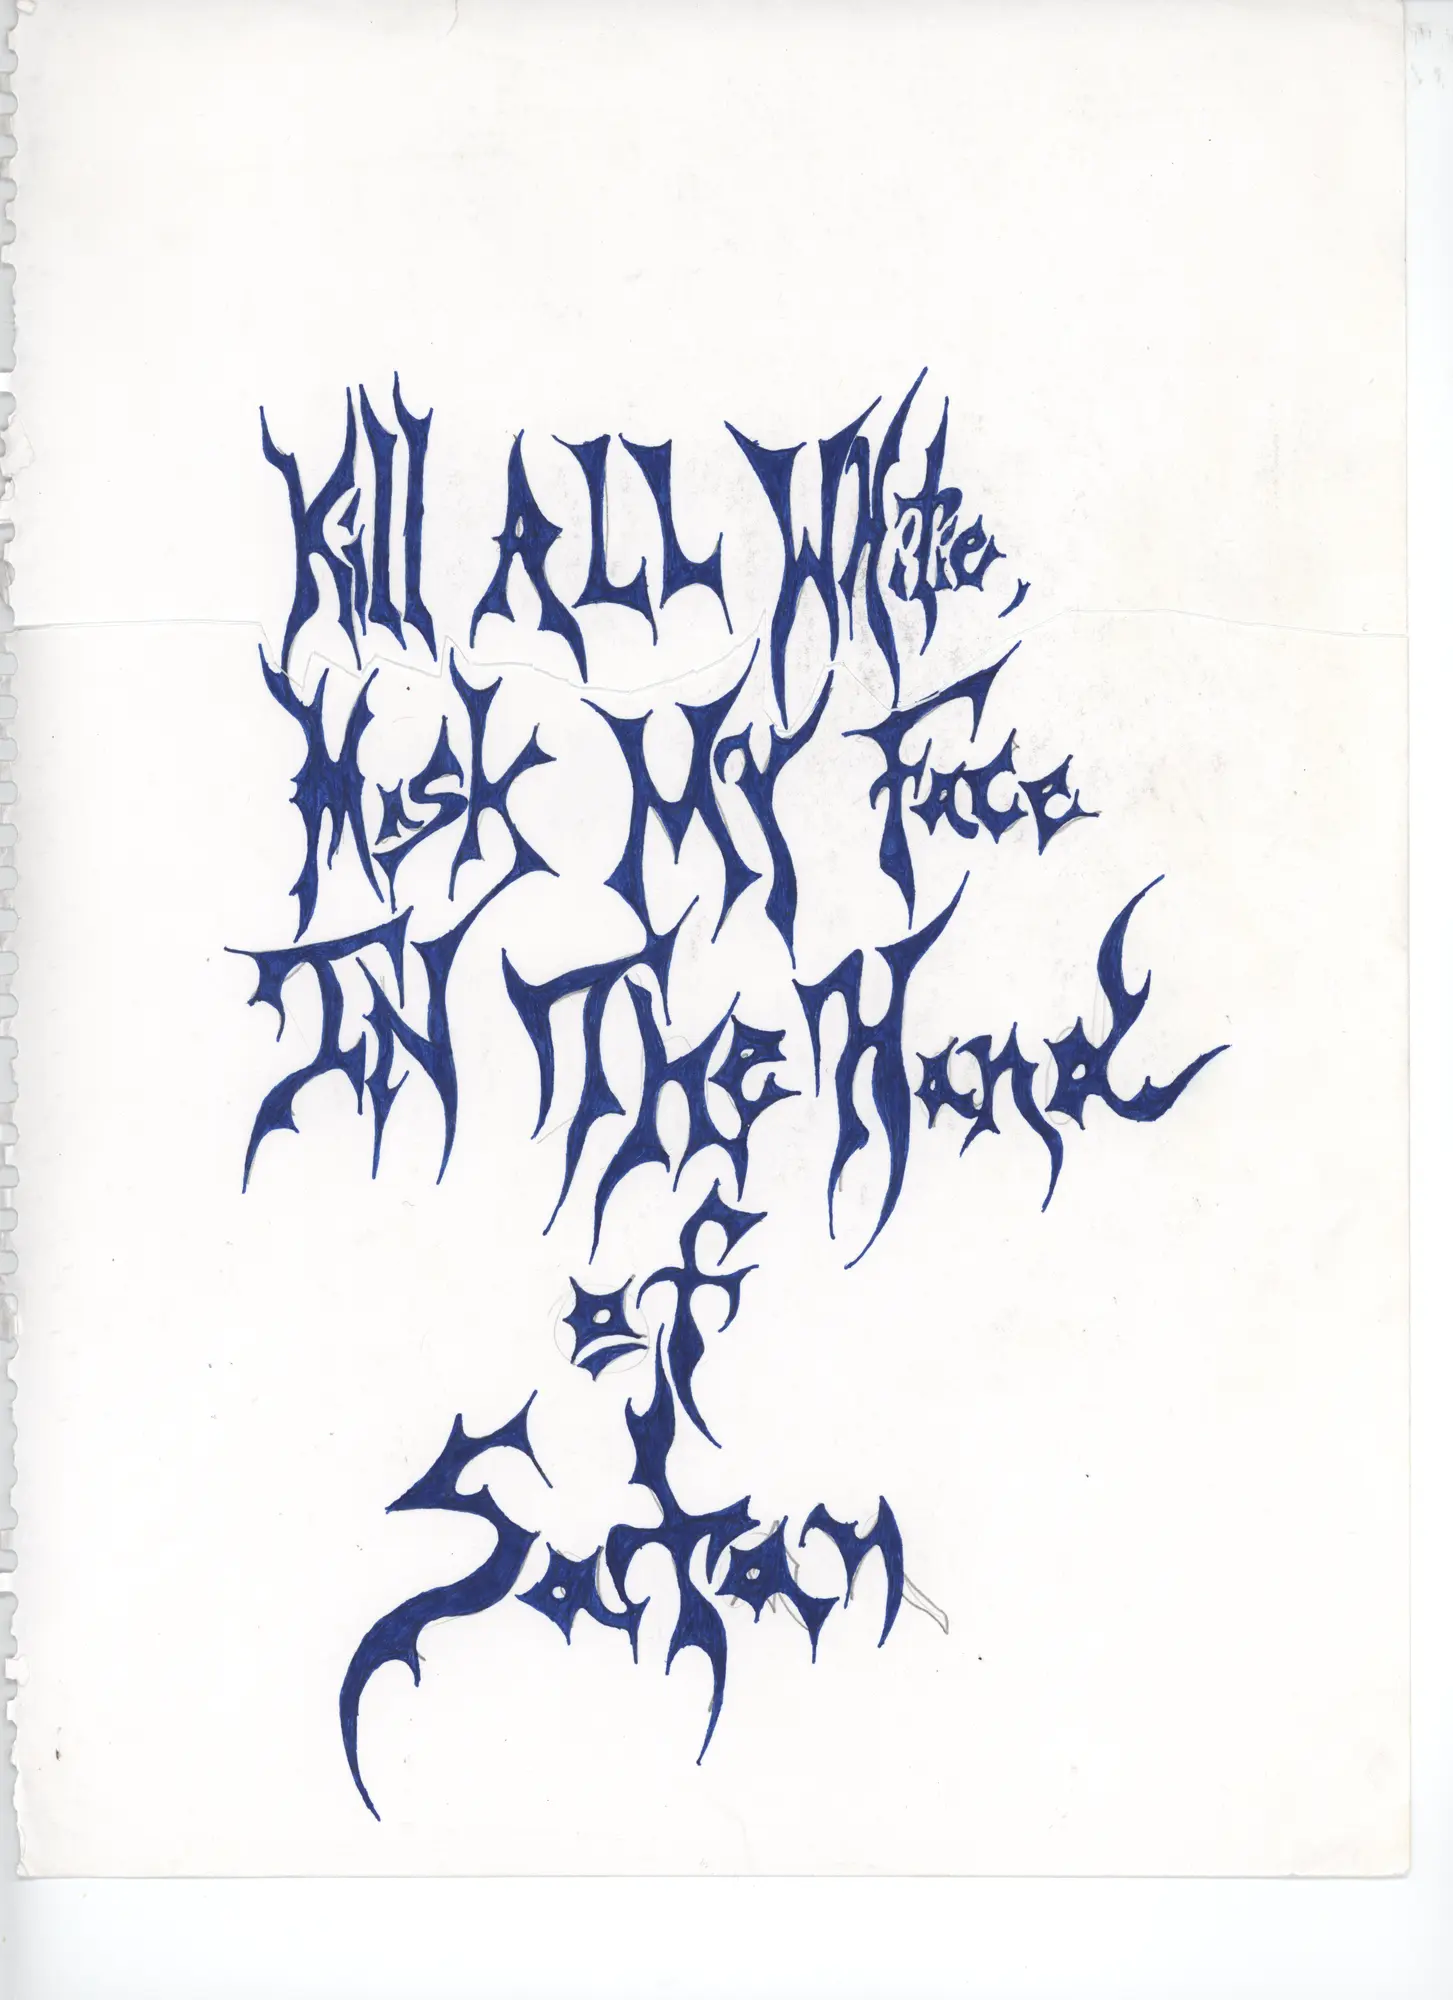 Kill ALL WHite,
Mask MY Face
IN THe Hand
of
Satan